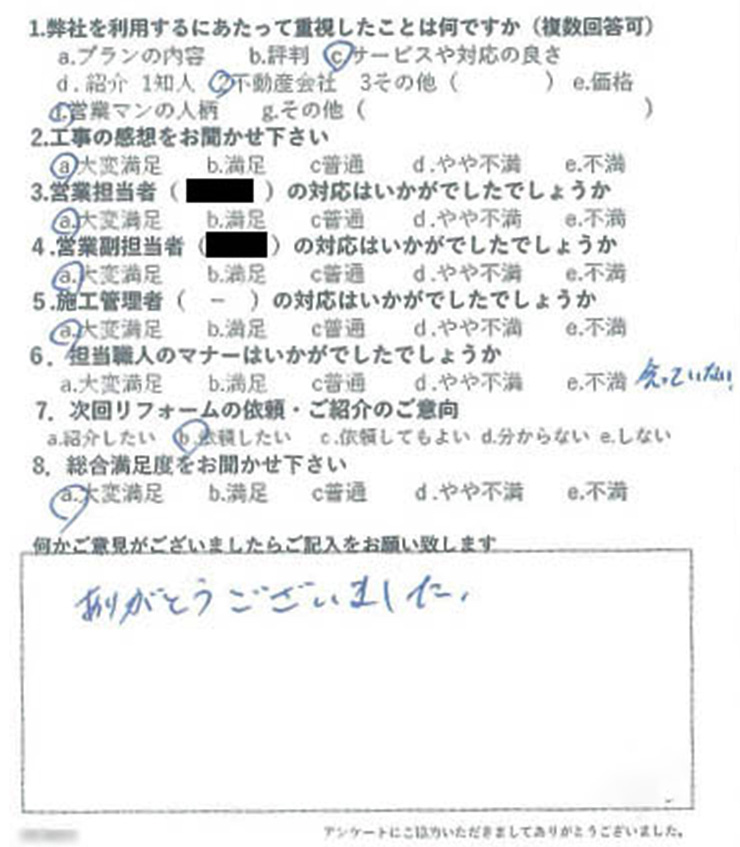 1.弊社を利用するにあたって重視したことは何ですか（複数回答可）
a.プランの内容　b.評判　c.サービスや対応の良さ
d.紹介 1知人 2不動産会社 3その他（　　　）e.価格
f.営業マンの人柄　g.その他（　　　　　　　）
2.工事の感想をお聞かせ下さい
a大変満足　b.満足　c普通　d.やや不満　e.不満
3.営業担当者（　　）の対応はいかがでしたでしょうか
a.大変満足　b.満足　c普通　d.やや不満　e.不満
4.営業副担当者（　　）の対応はいかがでしたでしょうか
a.大変満足　b.満足　c普通　d.やや不満　e.不満
5.施工管理者（　－　）の対応はいかがでしたでしょうか
a.大変満足　b.満足　c普通　d.やや不満　e.不満
6．担当職人のマナーはいかがでしたでしょうか
a.大変満足　b.満足　c普通　d.やや不満　e.不満 会っていない!
7．次回リフォームの依頼・ご紹介のご意向
a.紹介したい　b.依頼したい　c.依頼してもよい d.分からない e.しない
8．総合満足度をお聞かせ下さい
a.大変満足　b.満足　c普通　d.やや不満　e.不満
何かご意見がございましたらご記入をお願い致します
ありがとうございました.
アンケートにご協力いただきましてありがとうございました。